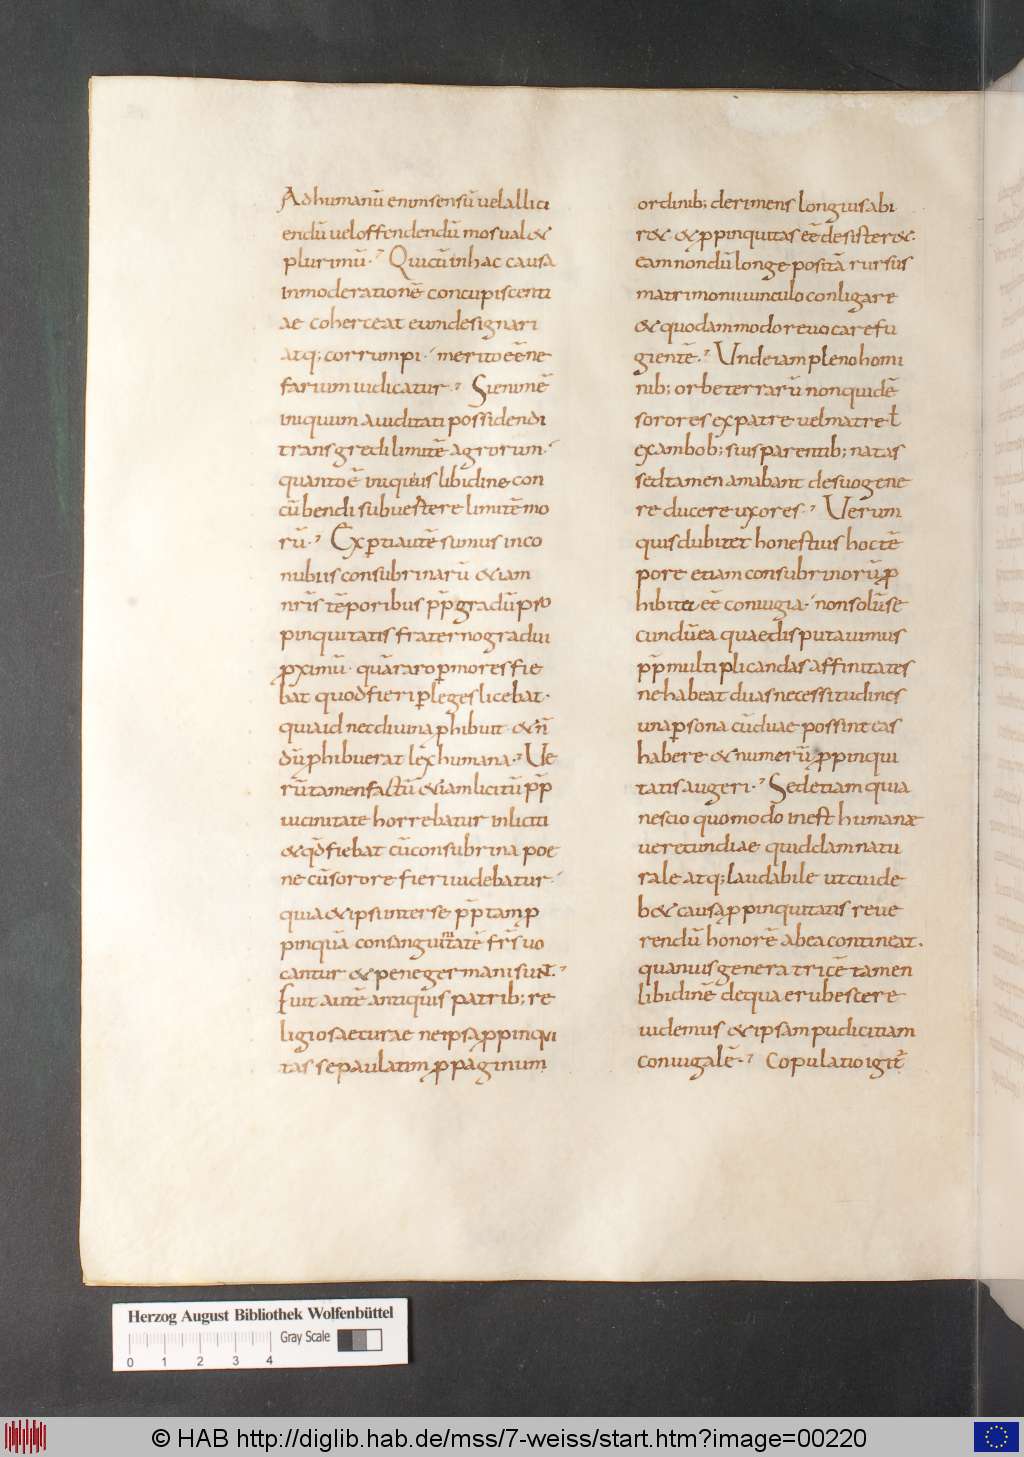 Adhumanū enim sensū vel allici
endū vel offendendū mos val&
plurimū. Qui cū inhac causa
inmoderationē concupiscenti
ae coherceat eum designari
atq; corrumpi. merito eē ne
farium iudicatur. Si enim ē
iniquum auiditati possidendi
transgredi limitē agrorum.
quanto ē iniquius libidine con
cūbendi subuertere limitē mo
rū. Expti autē sumus in co
nubiis consubrinarū &iam
nr̄is tēporibus pp̄ gradū pro
pinquitatis fraterno gradui
pximū. quā raro pmores fie
bat quod fieri pleges licebat.
quia id nec diuina phibuit &n̄
dū phibuerat lex humana. Ve
rūtamen factū &iam licitū pp̄
uicinitate horrebatur inliciti
&qd̄ fiebat cū consubrina poe
ne cū sorore fieri uidebatur.
quia &ipsi inter se pp̄ tam p
pinquā consanguinitatē frs̄ uo
cantur &pene germani sunt.
Fuit autē antiquis patrib; re
ligiosae curae ne ipsa ppinqui
tas se paulatim ppaginum
ordinib; derimens longius abi
r& &ppinquitas eē desister&.
eam nondū longe positā rursus
matrimonii uinculo conligare
&quodammodo reuocare fu
gientē. Vnde iam pleno homi
nib; orbe terrarū non quidē
sorores ex patre uel matre ł
ex ambob; suis parentib; natas
sed tamen amabant de suo gene
re ducere uxores. Verum
quis dubitet honestius hoc tē
pore etiam consubrinorū p
hibita eē coniugia. non solū se
cundū ea quae disputauimus
pp̄ multiplicandas affinitates
ne habeat duas necessitudines
una psona cū duae possint eas
habere &numerū ppinqui
tatis augeri. Sed etiam quia
nescio quomodo inest humanae
uerecundiae quiddam natu
rale atq; laudabile ut cui de
b& causa ppinquitatis reue
rendū honorē ab ea contineat.
quamuis generatricē tamen
libidinē de qua erubescere
uidemus &ipsam pudicitiam
coniugalē. Copulatio igit̄
Herzog August Bibliothek Wolfenbüttel
Gray Scale
0 1 2 3 4
© HAB http://diglib.hab.de/mss/7-weiss/start.htm?image=00220